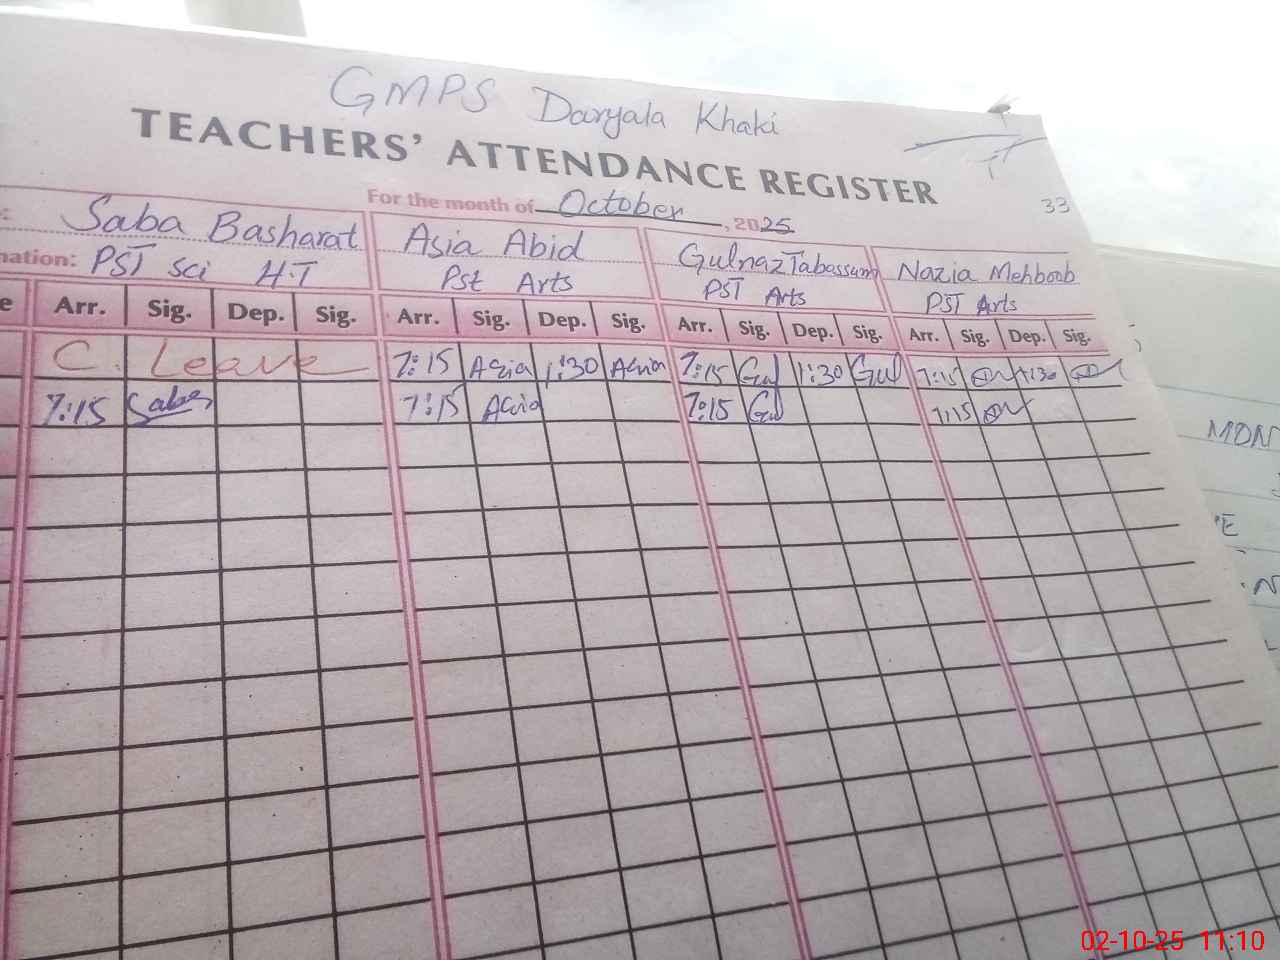 GMPS Daryala Khaki
TEACHERS' ATTENDANCE REGISTER
For the month of October, 2025
33
Saba Basharat Asia Abid Gulnaz Tabassum Nazia Mehboob
nation: PST sci H.T Pst Arts PST Arts PST Arts
e Arr. Sig. Dep. Sig. Arr. Sig. Dep. Sig. Arr. Sig. Dep. Sig. Arr. Sig. Dep. Sig.
C. Leave 7:15 Asia 1:30 Asia 7:15 Gul 1:30 Gul 7:15 1:30
7:15 Saba 7:15 Asia 7:15 Gul 7:15
MON
02-10-25 11:10